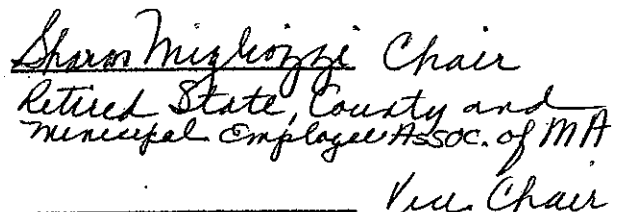 Sharon Migliozzi Chair
Retired State, County and
Municipal Employee Assoc. of MA
Vice Chair